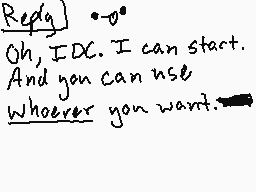 Reply
Oh, IDC. I can start.
And you can use
whoever you want.